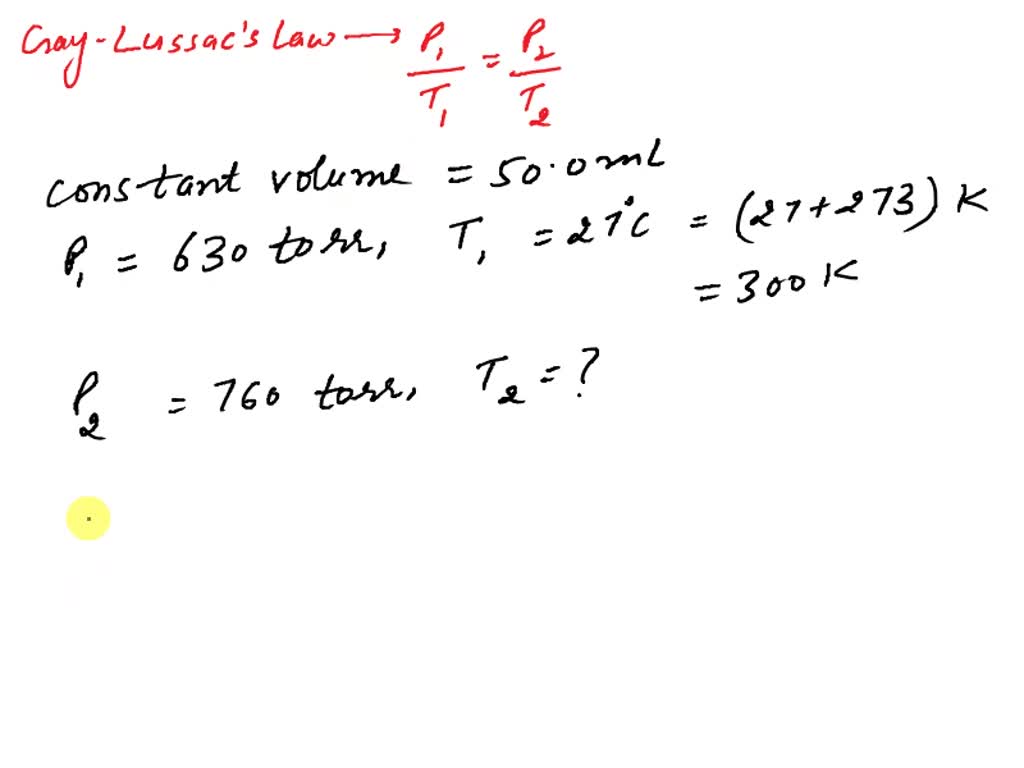 Gay-Lussac's Law → P₁/T₁ = P₂/T₂
constant volume = 50.0 mL
P₁ = 630 torr, T₁ = 27°C = (27+273) K
= 300 K
P₂ = 760 torr, T₂ = ?